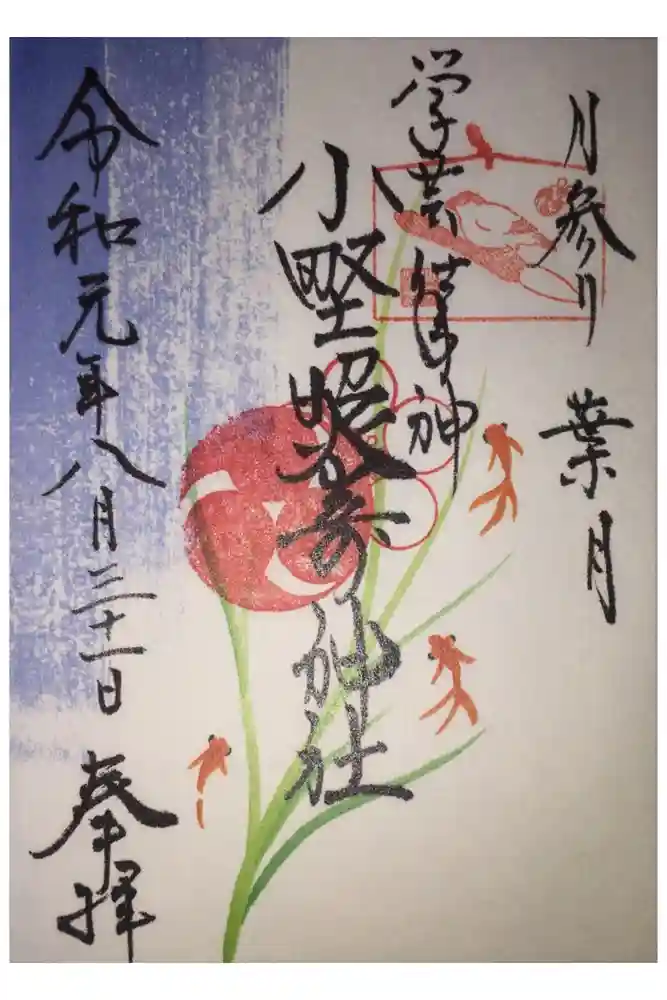 月参り 葉月
学芸仕事神
小野照崎神社
令和元年八月三十一日 奉拝